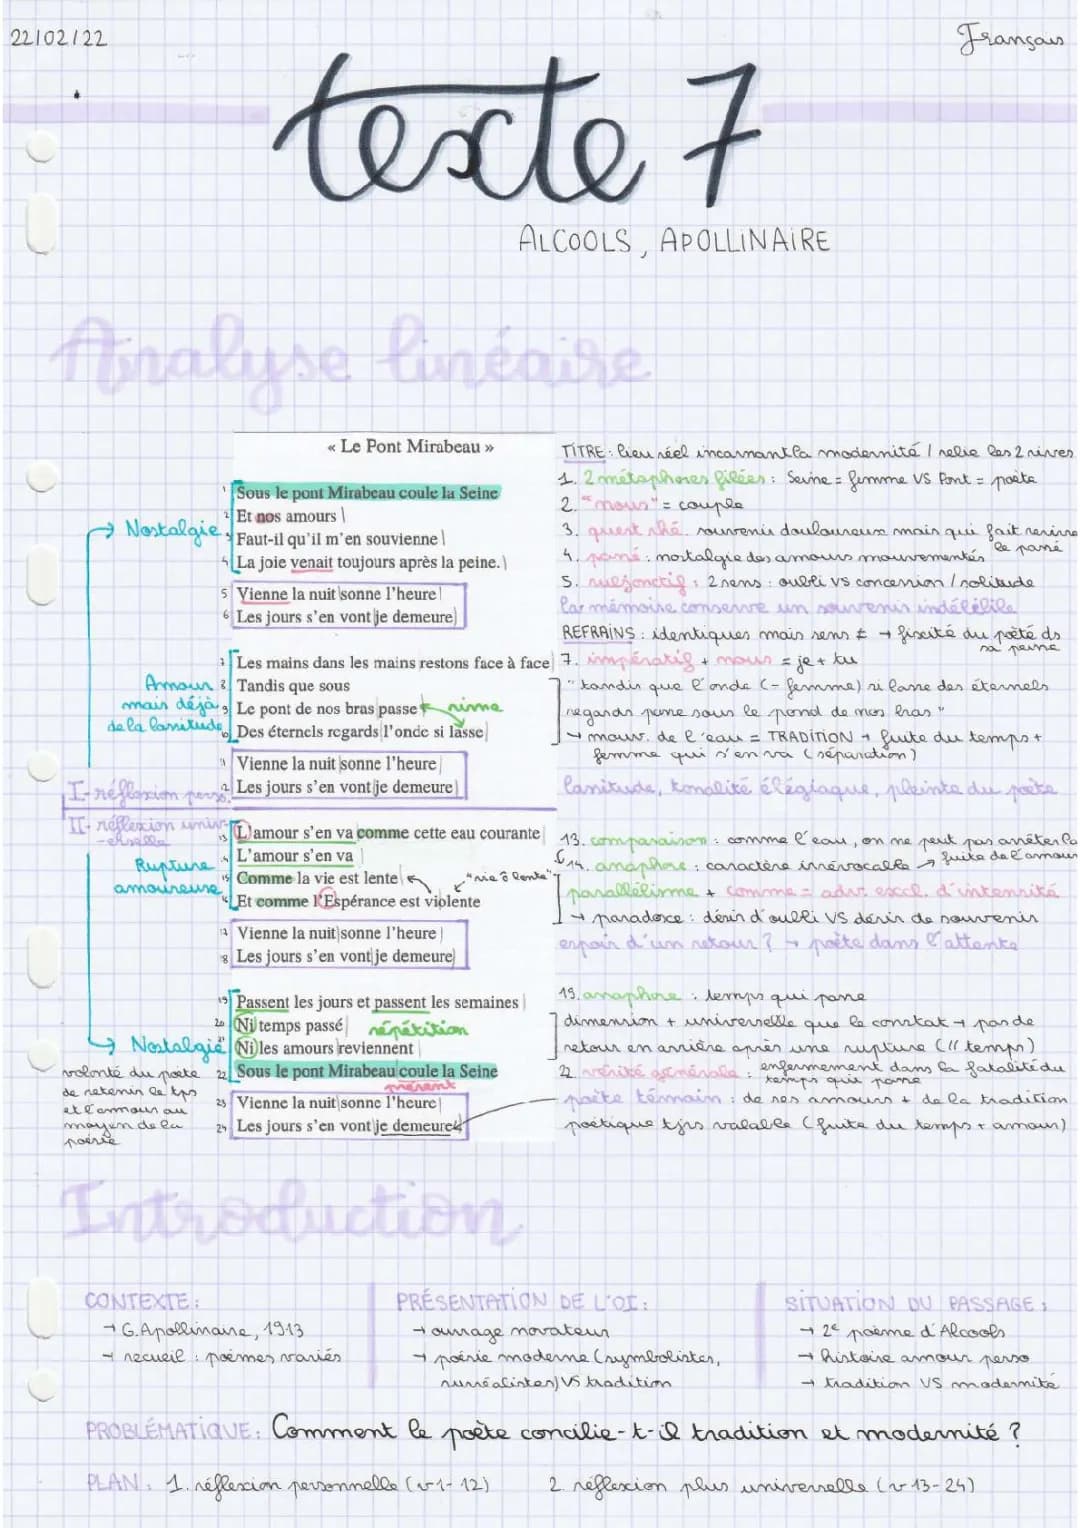 22/02/22
Français
texte 7
ALCOOLS, APOLLINAIRE
Analyse linéaire
« Le Pont Mirabeau »
1 Sous le pont Mirabeau coule la Seine
2 Et nos amours
3 Faut-il qu'il m'en souvienne
4 La joie venait toujours après la peine.
5 Vienne la nuit sonne l'heure
6 Les jours s'en vont je demeure
7 Les mains dans les mains restons face à face
8 Tandis que sous
9 Le pont de nos bras passe
10 Des éternels regards l'onde si lasse
11 Vienne la nuit sonne l'heure
12 Les jours s'en vont je demeure
13 L'amour s'en va comme cette eau courante
14 L'amour s'en va
15 Comme la vie est lente
16 Et comme l'Espérance est violente
17 Vienne la nuit sonne l'heure
18 Les jours s'en vont je demeure
19 Passent les jours et passent les semaines
20 Ni temps passé
21 Ni les amours reviennent
22 Sous le pont Mirabeau coule la Seine
23 Vienne la nuit sonne l'heure
24 Les jours s'en vont je demeure
Nostalgie
Amour
mais déjà
de la lassitude
rime
I- réflexion perso.
II- réflexion univ-
-erselle
Rupture
amoureuse
"vie ô lente"
répétition
Nostalgie
présent
volonté du poète
de retenir le tps
et l'amour au
moyen de la
poésie
TITRE : lieu réel incarnant la modernité / relie les 2 rives
1. 2 métaphores filées : Seine = femme VS Pont = poète
2. "nous" = couple
3. quest rhé. souvenir douloureux mais qui fait revivre
le passé
4. passé : nostalgie des amours mouvementés
5. subjonctif : 2 sens : oubli vs concession / solitude
La mémoire conserve un souvenir indélébile
REFRAINS : identiques mais sens ≠ → fixité du poète ds
sa peine
7. impératif + nous = je + tu
"tandis que l'onde (- femme) si lasse des éternels
regards passe sous le pond de nos bras"
→ mouv. de l'eau = TRADITION → fuite du temps +
femme qui s'en va (séparation)
lassitude, tonalité élégiaque, plainte du poète
13. comparaison : comme l'eau, on ne peut pas arrêter la
fuite de l'amour
14. anaphore : caractère irrévocable →
parallélisme + comme = adv. excl. d'intensité
→ paradoxe : désir d'oubli VS désir de souvenir
espoir d'un retour ? → poète dans l'attente
19. anaphore : temps qui passe
dimension + universelle que le constat → pas de
retour en arrière après une rupture (// temps)
22 vérité générale : enfermement dans la fatalité du
temps qui passe
poète témoin : de ses amours + de la tradition
poétique tjrs valable (fuite du temps + amour)
Introduction
CONTEXTE :
→ G. Apollinaire, 1913
→ recueil : poèmes variés
PRÉSENTATION DE L'OI :
→ ouvrage novateur
→ poésie moderne (symbolistes,
surréalistes) VS tradition
SITUATION DU PASSAGE :
→ 2e poème d'Alcools
→ histoire amour perso
→ tradition VS modernité
PROBLÉMATIQUE : Comment le poète concilie-t-il tradition et modernité ?
PLAN : 1. réflexion personnelle (v 1-12) 2. réflexion plus universelle (v 13-24)